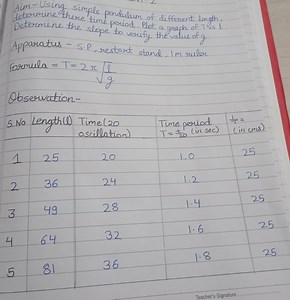 Aim - Using simple pendulum of different length,
determine there time period. Plot a graph of T² vs l.
Determine the slope to verify the value of g
Apparatus - S.P., restort stand, 1m ruler
Formula = T = 2π √l/g
Observation -
S.No Length(l) Time (20 oscillation) Time period T = t/20 (in sec) (in cms)
1 25 20 1.0 25
2 36 24 1.2 25
3 49 28 1.4 25
4 64 32 1.6 25
5 81 36 1.8 25
Teacher's Signature